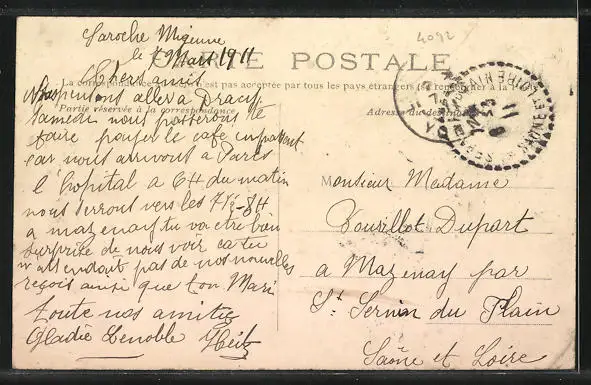 Laroche Migenne
4092
le 7 Mars 1911
CARTE POSTALE
Chers amis
La correspondance n'est pas acceptée par tous les pays étrangers (se renseigner à la Poste)
Partie réservée à la correspondance
Adresse du destinataire
Nous pensons aller a Dracy
Samedi nous passerons te
faire le café en passant
car nous arrivont a Parès
l'hopital a 6H du matin
nous serrons vers les 7½-8H
a mazenay tu va être bien
surprise de nous voir ca tu
n'attendait pas de nos nouvelles
reçois ainsi que ton Mari
toute nos amitiés
Gladie Lenoble
Monsieur Madame
Touvillot Dupart
a Mazenay par
St. Sernin du Plain
Saône et Loire